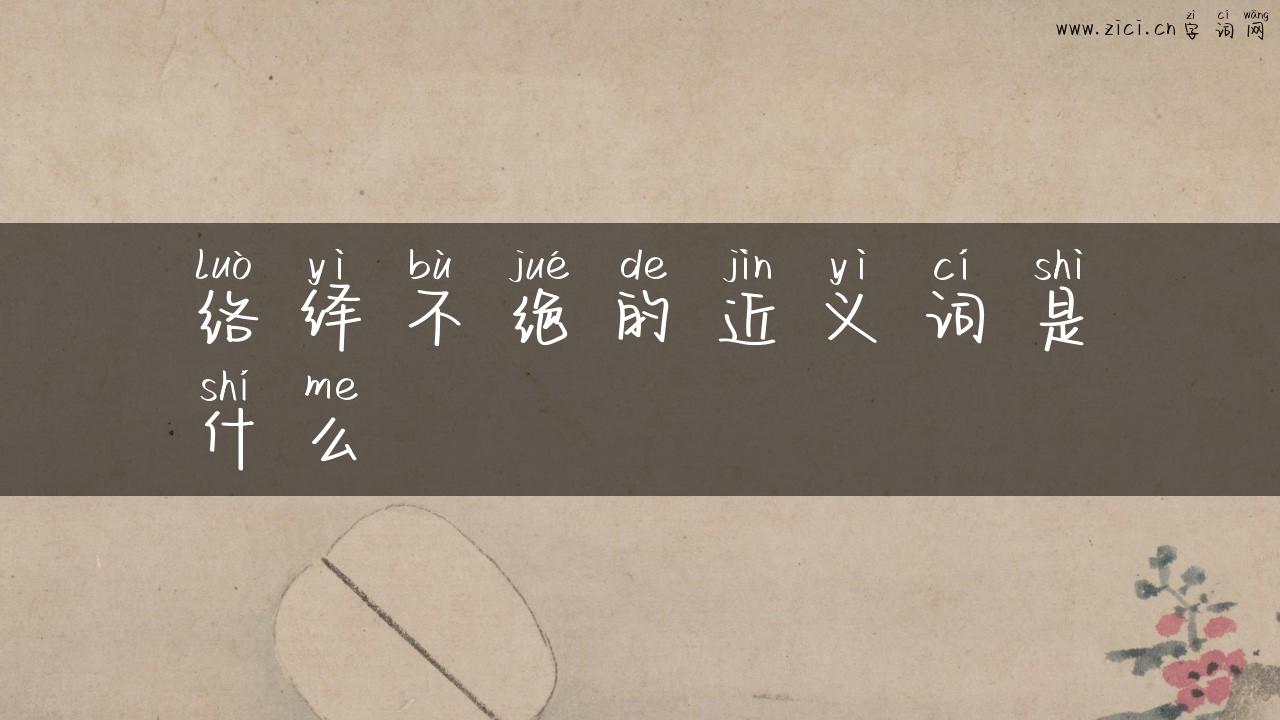 zì cí wǎng
www.zici.cn字词网
luò yì bù jué de jìn yì cí shì
络绎不绝的近义词是
shí me
什么